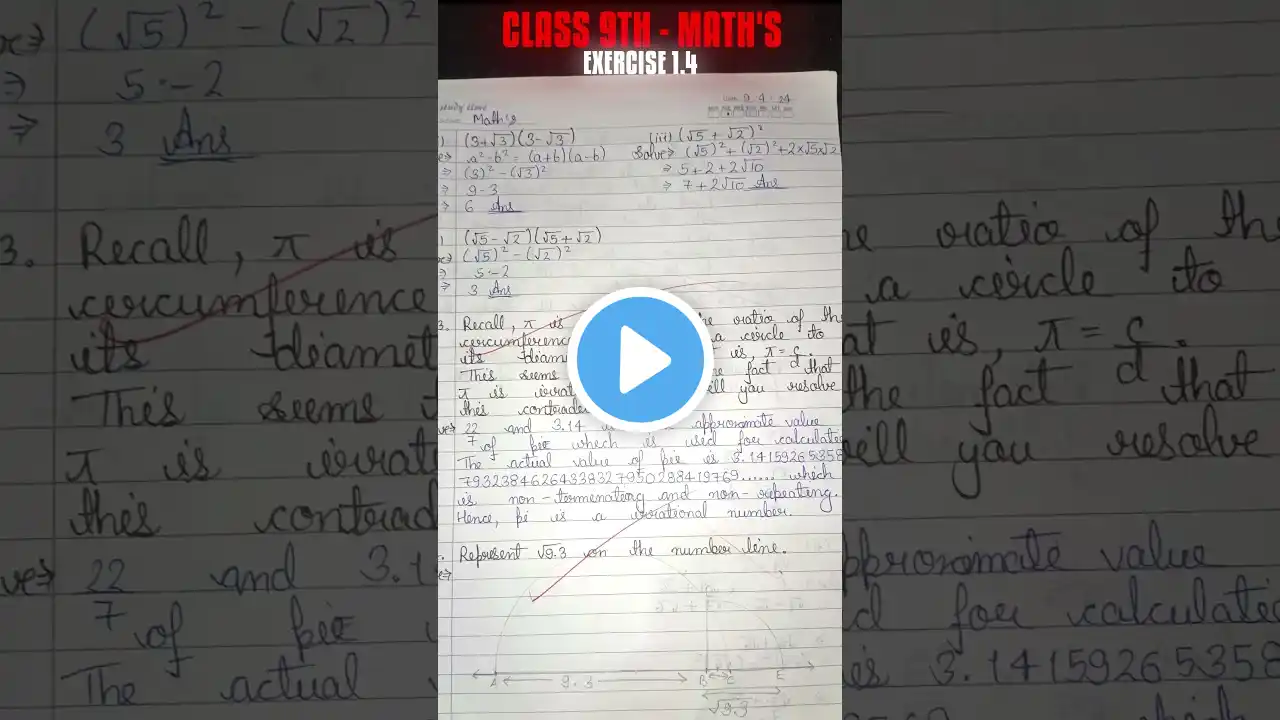 CLASS 9TH - MATH'S
EXERCISE 1.4
9.4.24
Math's
(3+√3)(3-√3)
a²-b² = (a+b)(a-b)
⇒ (3)² - (√3)²
⇒ 9-3
⇒ 6 Ans
(iii) (√5 + √2)²
Solve⇒ (√5)² + (√2)² + 2×√5×√2
⇒ 5 + 2 + 2√10
⇒ 7 + 2√10 Ans
(√5 - √2)(√5 + √2)
(√5)² - (√2)²
5-2
3 Ans
3. Recall, π is ratio of the
circumference a circle to
its diamet is, π = c/d.
This seems fact that
π is irrat will you resolve
this contrad
22/7 and 3.14 approximate value
of pie which is used for calculate
The actual value of pie is 3.14159265358
9323846264338327950288419769...... which
is non-tormenating and non-repeating.
Hence, pi is a irrational number.
Represent √9.3 on the number line.
A 9.3 B C E
√9.3